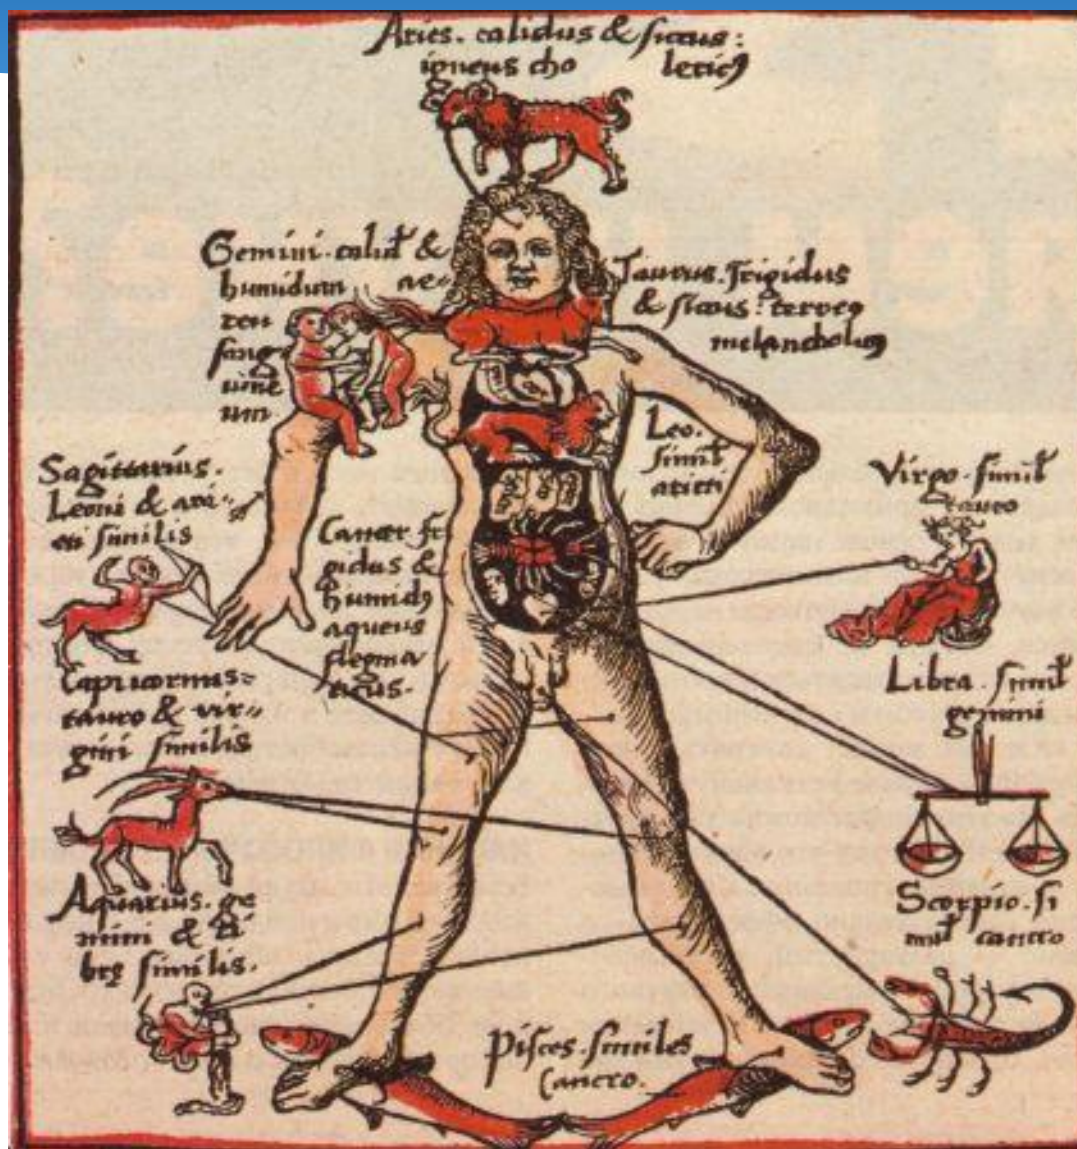 Aries. calidus & siccus:
igneus cho lericꝰ
Gemini. calid &
humidum ae-
reu
sang
uine
um
Taurus. frigidus
& siccus:
melancholicꝰ
Leo.
simil
arieti
Sagittarius.
Leoni & ari-
eti similis
Cancer. fri
gidus &
humidꝰ
aqueus
flegma
ticus.
Virgo. simil
tauro
Capricornus
tauro & vir-
gini similis
Libra. simil
gemini
Aquarius. ge
mini & li
brę similis.
Scorpio. si
mil cancro
Pisces. similes
Cancro.